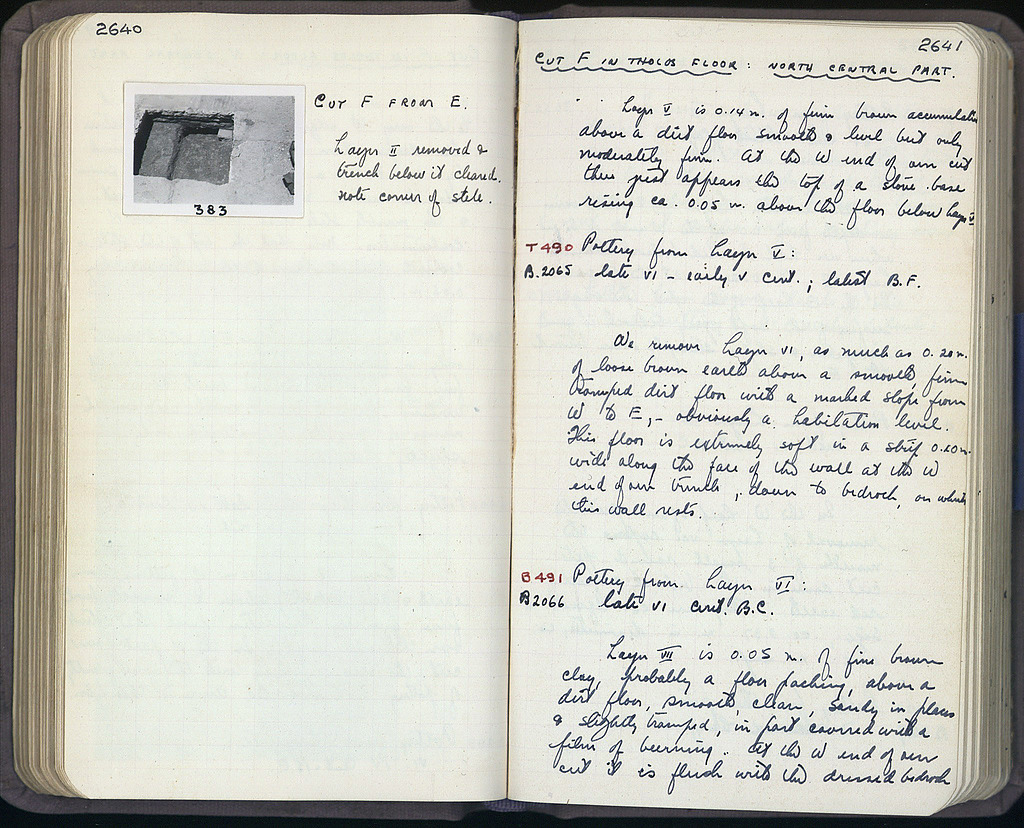 2640
CUT F FROM E.
Layer II removed &
trench below it cleared.
Note corner of stele.
383
2641
CUT F IN THOLOS FLOOR: NORTH CENTRAL PART.
Layer V is 0.14 m. of firm brown accumulation
above a dirt floor smooth & level but only
moderately firm. At the W end of our cut
there just appears the top of a stone base
rising ca. 0.05 m. above the floor below Layer V
T 490 Pottery from Layer V:
B.2065 late VI - early V cent.; latest B.F.
We remove Layer VI, as much as 0.20 m.
of loose brown earth above a smooth, firm
tramped dirt floor with a marked slope from
W to E, - obviously a habitation level.
This floor is extremely soft in a strip 0.20 m.
wide along the face of the wall at the W
end of our trench, down to bedrock, on which
this wall rests.
B 491 Pottery from Layer VI:
B2066 late VI cent. B.C.
Layer VII is 0.05 m. of fine brown
clay, probably a floor packing, above a
dirt floor, smooth, clean, sandy in places
& slightly tramped, in part covered with a
film of burning. At the W end of our
cut it is flush with the dressed bedrock